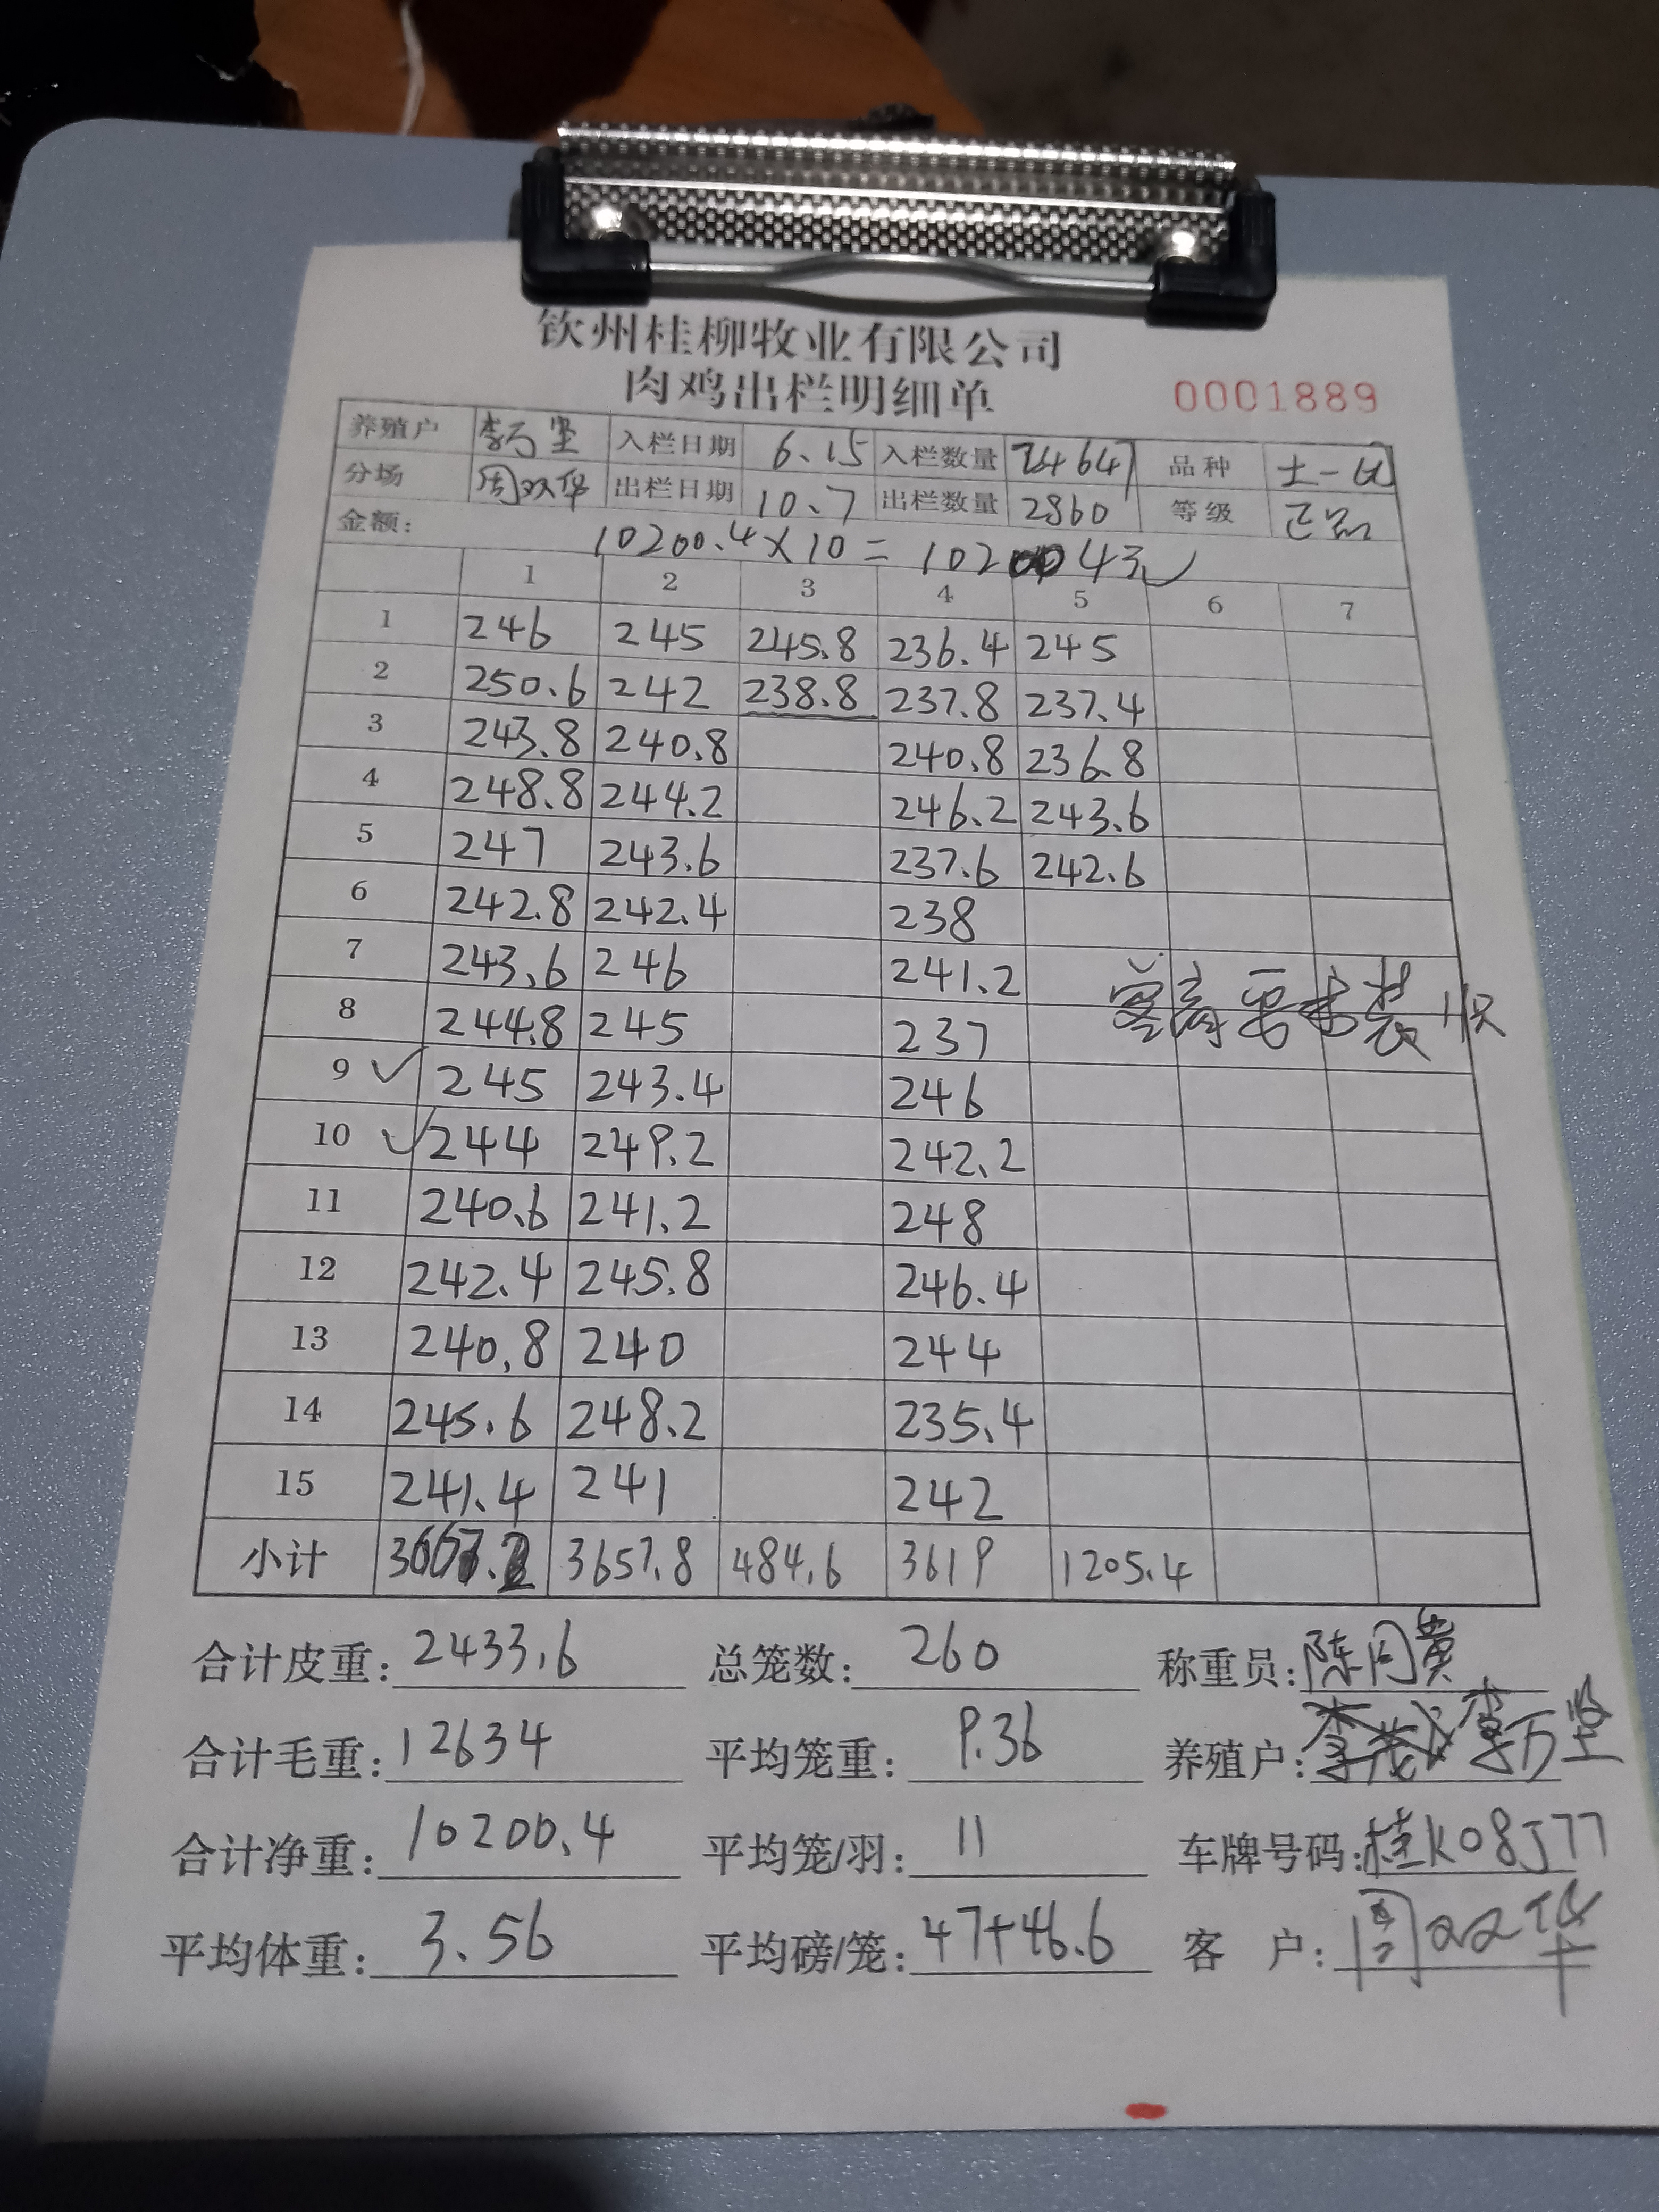 钦州桂柳牧业有限公司
肉鸡出栏明细单 0001889
养殖户 李万坚 入栏日期 6.15 入栏数量 品种 土一
分场 周双华 出栏日期 10.7 出栏数量 2860 等级 正品
金额: 10200.4×10=102004元
1 2 3 4 5 6 7
1 246 245 245.8 236.4 245
2 250.6 242 238.8 237.8 237.4
3 243.8 240.8 240.8 236.8
4 248.8 244.2 246.2 243.6
5 247 243.6 237.6 242.6
6 242.8 242.4 238
7 243.6 246 241.2
8 244.8 245 237
客商要求装11只
9 ✓ 245 243.4 246
10 ✓ 244 249.2 242.2
11 240.6 241.2 248
12 242.4 245.8 246.4
13 240.8 240 244
14 245.6 248.2 235.4
15 241.4 241 242
小计 3667.2 3657.8 484.6 3619 1205.4
合计皮重: 2433.6 总笼数: 260 称重员: 陈同黄
合计毛重: 12634 平均笼重: 9.36 养殖户: 李万坚
合计净重: 10200.4 平均笼/羽: 11 车牌号码: 桂K08J77
平均体重: 3.56 平均磅/笼: 47+46.6 客 户: 周双华